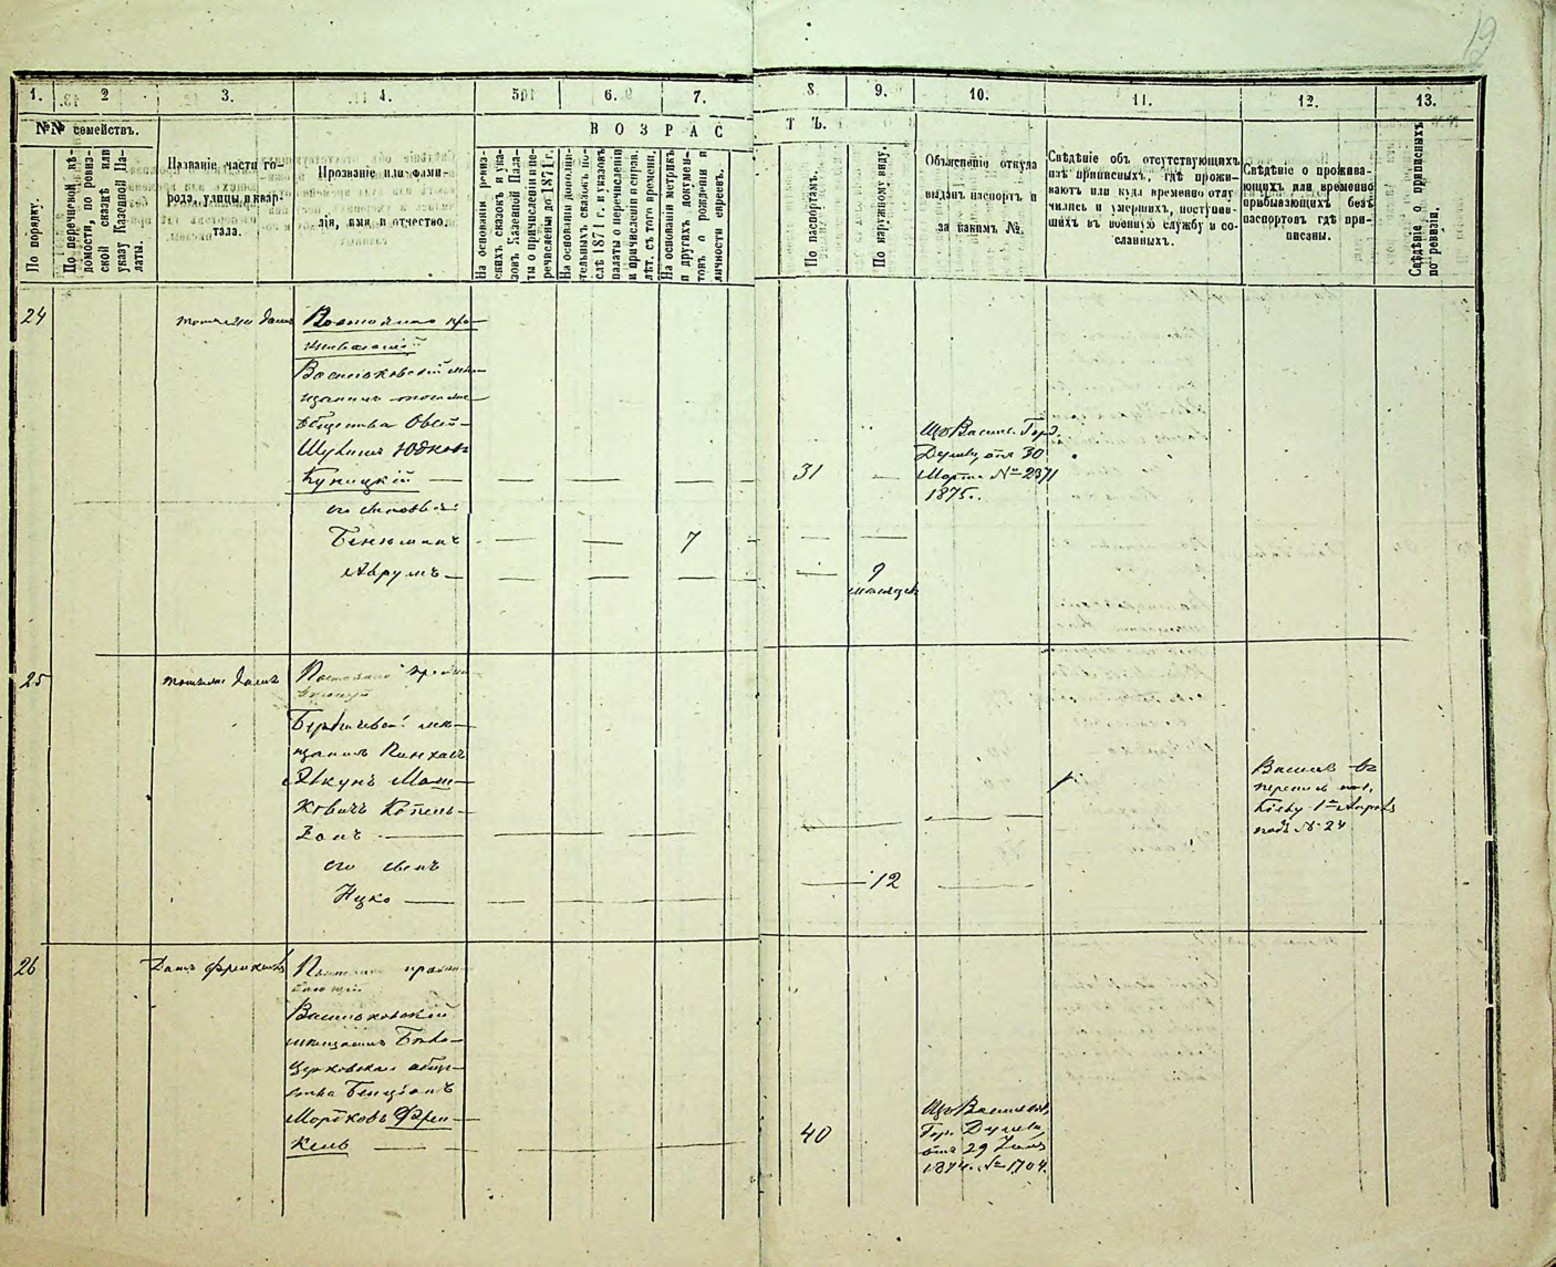 19
1.
2
3.
4.
5
6.
7.
8
9.
10.
11.
12.
13.
№№ семействъ.
ВОЗРАС
ТЪ.
По порядку.
По перечневой вѣ-
домости, по ревиз-
ской сказкѣ или
указу Казенной Па-
латы.
Названіе части го-
рода, улицы и квар-
тала.
Прозваніе или фами-
лія, имя и отчество.
На основаніи ревиз-
скихъ сказокъ и ука-
зовъ Казенной Пала-
ты о причисленіи пе-
речислены до 1871 г.
На основаніи дополни-
тельныхъ сказокъ по-
слѣ 1871 г. и указовъ
палаты о перечисленіи
и причисленіи справ.
лѣт. съ того времени.
На основаніи метрикъ
и другихъ докумен-
товъ о рожденіи и
личности евреевъ.
По паспортамъ.
По наружному виду.
Объясненіе откуда
выданъ паспортъ и
за какимъ №.
Свѣдѣніе объ отсутствующихъ
изъ приписныхъ, гдѣ прожи-
ваютъ или куда временно отлу
чились и умершихъ, поступив-
шихъ въ военную службу и со-
сланныхъ.
Свѣдѣніе о прожива-
ющихъ или временно
прибывающихъ безъ
паспортовъ гдѣ при-
писаны.
Свѣдѣніе о приписныхъ
по ревизіи.
24
домъ
Васильковскій мѣ-
щанинъ
общества Овсей-
Юдковъ
Куницкій —
Изъ Васил. Гор.
Думы, отъ 30
Марта № 2371
1875.
31
его сыновья:
Беньминъ
7
Аврумъ —
9
мѣсяцевъ
25
домъ
Бердичевскій мѣ-
щанинъ Пинхасъ
Янкунъ Мош-
ковичъ Копель-
Васильк. въ
1-е Апрѣля
подъ № 24
его сынъ
Ицко —
12
26
Домъ Френкеля
Васильковскій
мѣщанинъ Бѣло-
церковскаго обще-
ства Бенціонъ
Мордковъ Френ-
кель
40
Изъ Васильков.
Гор. Думы,
отъ 29
1874. № 1704.